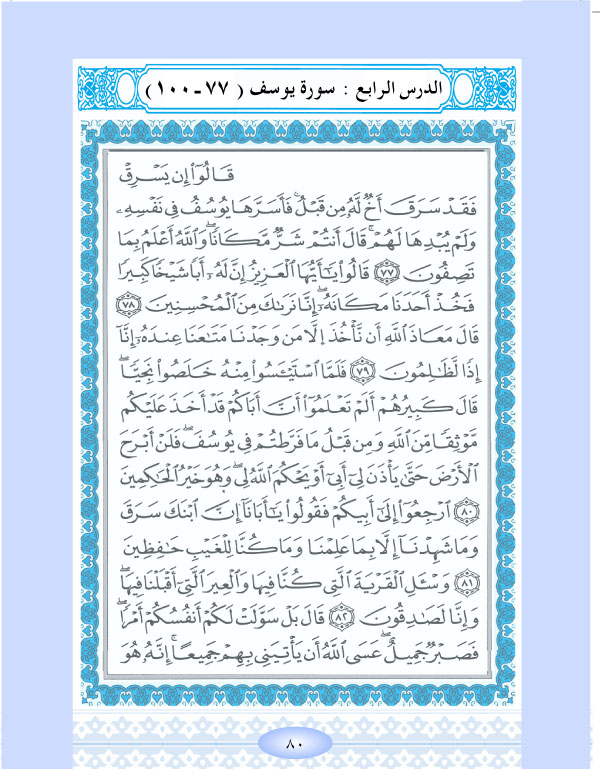 الدرس الرابع : سورة يوسف ( ٧٧ - ١٠٠ )
قَالُوٓا۟ إِن يَسْرِقْ
فَقَدْ سَرَقَ أَخٌ لَّهُۥ مِن قَبْلُ ۚ فَأَسَرَّهَا يُوسُفُ فِى نَفْسِهِۦ
وَلَمْ يُبْدِهَا لَهُمْ ۚ قَالَ أَنتُمْ شَرٌّ مَّكَانًا ۖ وَٱللَّهُ أَعْلَمُ بِمَا
تَصِفُونَ ﴿٧٧﴾ قَالُوا۟ يَٰٓأَيُّهَا ٱلْعَزِيزُ إِنَّ لَهُۥٓ أَبًا شَيْخًا كَبِيرًا
فَخُذْ أَحَدَنَا مَكَانَهُۥٓ ۖ إِنَّا نَرَىٰكَ مِنَ ٱلْمُحْسِنِينَ ﴿٧٨﴾
قَالَ مَعَاذَ ٱللَّهِ أَن نَّأْخُذَ إِلَّا مَن وَجَدْنَا مَتَٰعَنَا عِندَهُۥٓ إِنَّآ
إِذًا لَّظَٰلِمُونَ ﴿٧٩﴾ فَلَمَّا ٱسْتَيْـَٔسُوا۟ مِنْهُ خَلَصُوا۟ نَجِيًّا ۖ
قَالَ كَبِيرُهُمْ أَلَمْ تَعْلَمُوٓا۟ أَنَّ أَبَاكُمْ قَدْ أَخَذَ عَلَيْكُم
مَّوْثِقًا مِّنَ ٱللَّهِ وَمِن قَبْلُ مَا فَرَّطتُمْ فِى يُوسُفَ ۖ فَلَنْ أَبْرَحَ
ٱلْأَرْضَ حَتَّىٰ يَأْذَنَ لِىٓ أَبِىٓ أَوْ يَحْكُمَ ٱللَّهُ لِى ۖ وَهُوَ خَيْرُ ٱلْحَٰكِمِينَ
﴿٨٠﴾ ٱرْجِعُوٓا۟ إِلَىٰٓ أَبِيكُمْ فَقُولُوا۟ يَٰٓأَبَانَآ إِنَّ ٱبْنَكَ سَرَقَ
وَمَا شَهِدْنَآ إِلَّا بِمَا عَلِمْنَا وَمَا كُنَّا لِلْغَيْبِ حَٰفِظِينَ
﴿٨١﴾ وَسْـَٔلِ ٱلْقَرْيَةَ ٱلَّتِى كُنَّا فِيهَا وَٱلْعِيرَ ٱلَّتِىٓ أَقْبَلْنَا فِيهَا ۖ
وَإِنَّا لَصَٰدِقُونَ ﴿٨٢﴾ قَالَ بَلْ سَوَّلَتْ لَكُمْ أَنفُسُكُمْ أَمْرًا ۖ
فَصَبْرٌ جَمِيلٌ ۖ عَسَى ٱللَّهُ أَن يَأْتِيَنِى بِهِمْ جَمِيعًا ۚ إِنَّهُۥ هُوَ
٨٠